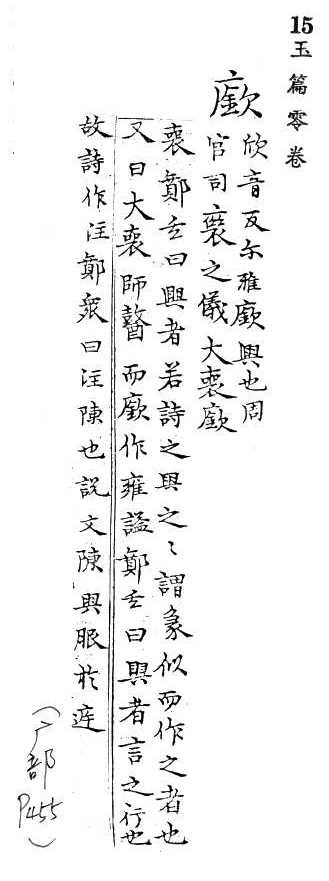 15 玉篇零卷
廞
欣音反尔雅廞興也周
官司裘之儀大喪廞
裘鄭玄曰興者若詩之興之〻謂象似而作之者也
又曰大喪師瞽而廞作雍謚鄭玄曰興者言之行也
故詩作汪鄭衆曰汪陳也説文陳興服於庭
(广部 P455)